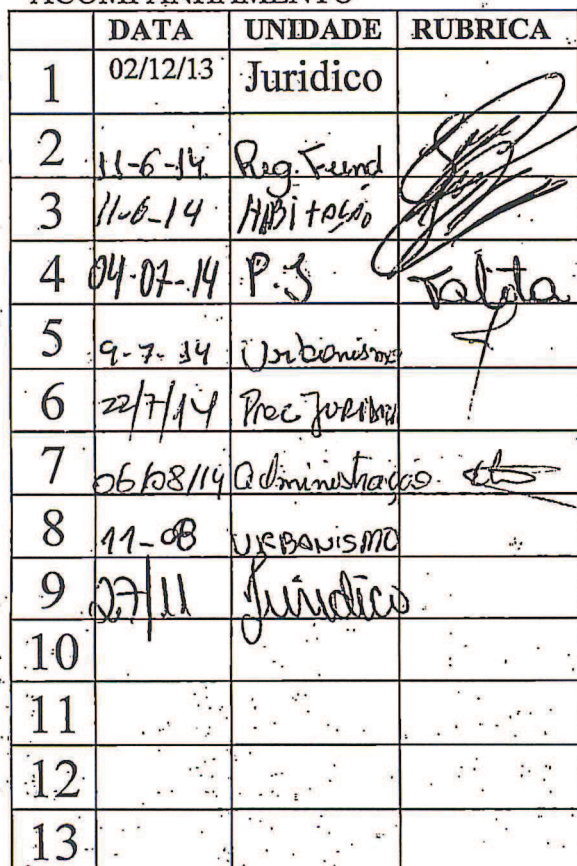 ACOMPANHAMENTO
DATA UNIDADE RUBRICA
1 02/12/13 Juridico
2 11-6-14 Reg. Fund
3 11-6-14 HABitação
4 04-07-14 P.J Talita
5 9-7-14 Urbanismo
6 22/7/14 Proc
7 06/08/14 administração
8 11-08 URBANISMO
9 27/11 Jurídico
10
11
12
13